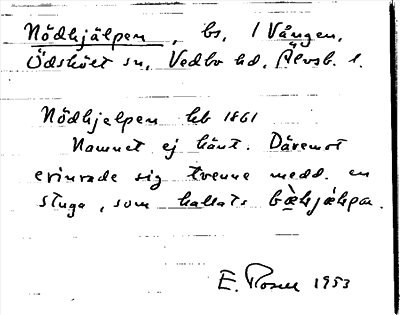 Nödhjälpen, bs, / Vången,
Ödskölt sn, Vedbo hd, Älvsb. l.
Nödhjelpen hfl 1861
Namnet ej känt. Däremot
erinrade sig tvenne medd. en
stuga, som kallats
E. Rosell 1953